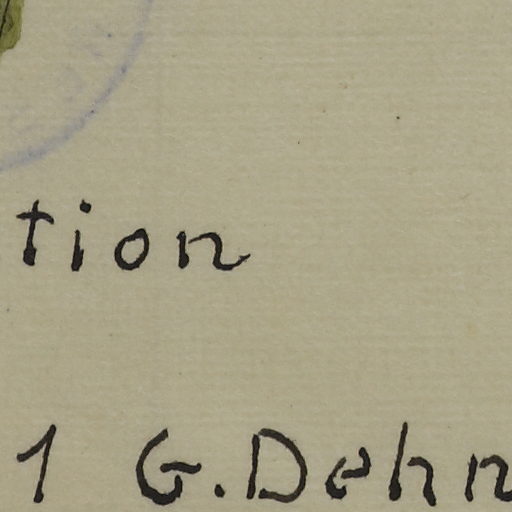 tion
1 G. Dehn